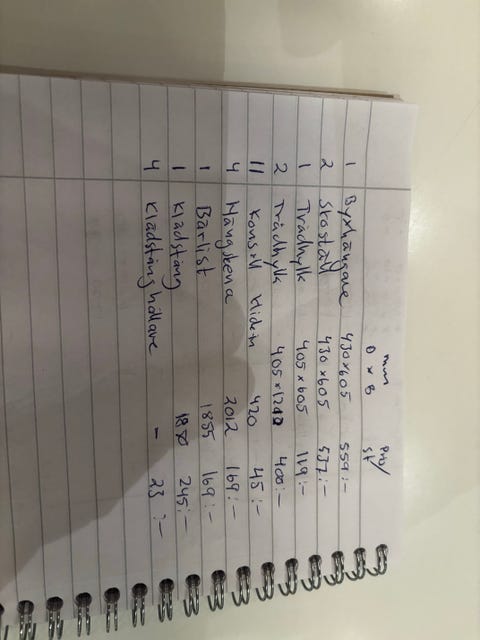 mm Pris/
D x B st
1 Byxhängare 430x605 559:-
2 Skoställ 430x605 537:-
1 Trådhylla 405x605 119:-
2 Trådhylla 405x1210 400:-
11 Konsoll 420 45:-
4 Hängskena 2012 169:-
1 Bärlist 1855 169:-
1 Klädstång 1850 245:-
4 Klädstånghållare - 23:-